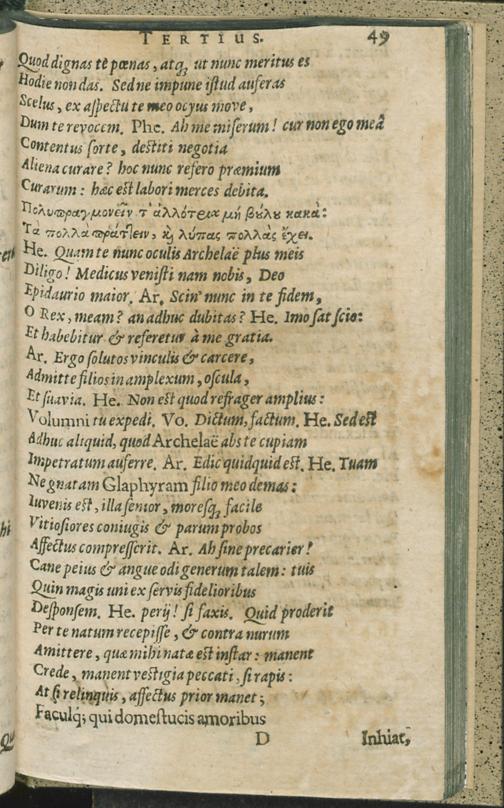 TERTIUS. 49
Quod dignas te pœnas, atq; ut nunc meritus es
Hodie non das. Sed ne impune iſtud auferas
Scelus, ex aſpectu te meo ocyus move,
Dum te revocem. Phe. Ah me miſerum! cur non ego meâ
Contentus ſorte, deſtiti negotia
Aliena curare? hoc nunc refero præmium
Curarum: hæc eſt labori merces debita.
Πολυπραγμονεῖν τ' ἀλλότρια μὴ βούλου κακά:
Τὰ πολλὰ πράττειν, καὶ λύπας πολλὰς ἔχει.
He. Quam te nunc oculis Archelaë plus meis
Diligo! Medicus veniſti nam nobis, Deo
Epidaurio maior. Ar. Scin' nunc in te fidem,
O Rex, meam? an adhuc dubitas? He. Imo ſat ſcio:
Et habebitur & referetur à me gratia.
Ar. Ergo ſolutos vinculis & carcere,
Admitte filios in amplexum, oſcula,
Et ſuavia. He. Non eſt quod refrager amplius:
Volumni tu expedi. Vo. Dictum, factum. He. Sed eſt
Adhuc aliquid, quod Archelaë abs te cupiam
Impetratum auferre. Ar. Edic quidquid eſt. He. Tuam
Ne gnatam Glaphyram filio meo demas:
Iuvenis eſt, illa ſenior, moreſq; facile
Vitioſiores coniugis & parum probos
Affectus compreſſerit. Ar. Ah ſine precarier!
Cane peius & angue odi generum talem: tuis
Quin magis uni ex ſervis fidelioribus
Deſponſem. He. perij! ſi faxis. Quid proderit
Per te natum recepiſſe, & contra nurum
Amittere, quæ mihi natæ eſt inſtar: manent
Crede, manent veſtigia peccati, ſi rapis:
At ſi relinquis, affectus prior manet;
Faculq; qui domeſtucis amoribus
D Inhiat,